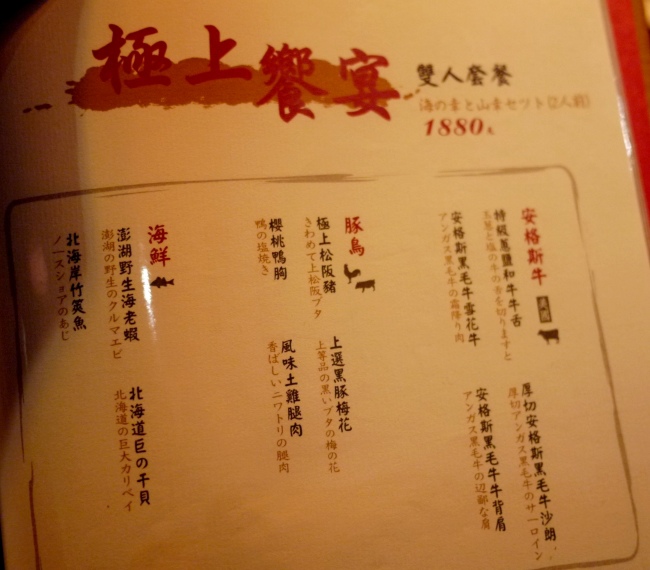 極上饗宴
雙人套餐
海の幸と山幸セツト(2人前)
1880元
安格斯牛
特級蔥鹽和牛牛舌
玉葱と塩の牛の舌を切りますと
安格斯黑毛牛雪花牛
アンガス黒毛牛の霜降り肉
厚切安格斯黑毛牛牛沙朗
厚切アンガス黒毛牛のサーロイン
安格斯黑毛牛牛背肩
アンガス黒毛牛の辺鄙な肩
豚鳥
極上松阪豬
きわめて上松阪ブタ
櫻桃鴨胸
鴨の塩焼き
上選黑豚梅花
上等品の黒いブタの梅の花
風味土雞腿肉
香ばしいニワトリの腿肉
海鮮
澎湖野生海老蝦
澎湖の野生のクルマエビ
北海岸竹筴魚
ノースショアのあじ
北海道巨の干貝
北海道の巨大カリベイ